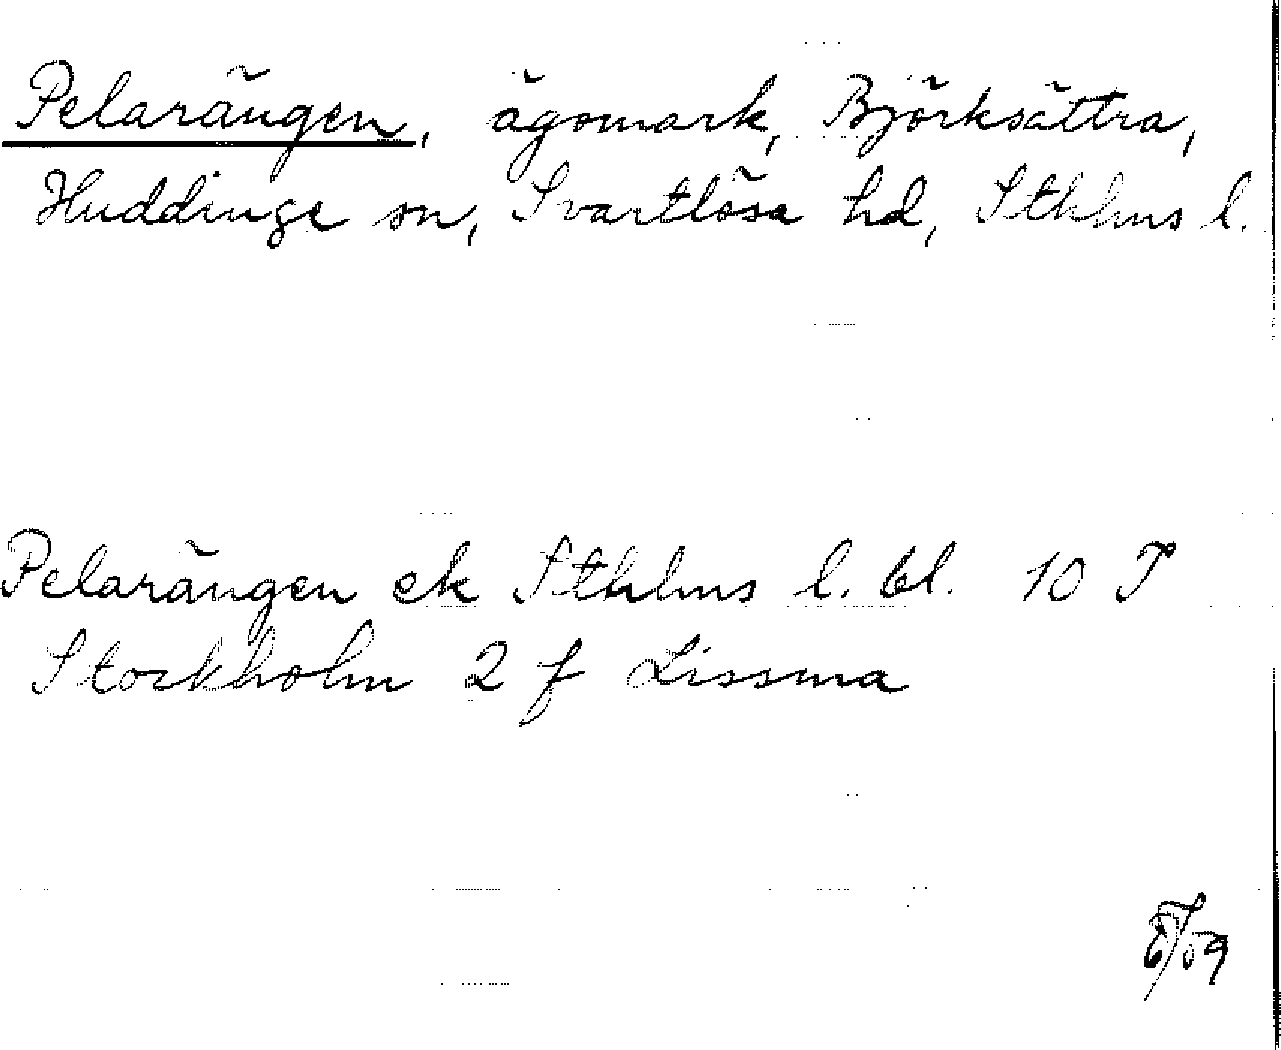 Pelarängen, ägomark, Björksättra,
Huddinge sn, Svartlösa hd, Sthlms l.
Pelarängen ek Sthlms l. bl. 10 T
Stockholm 2 f Lissma